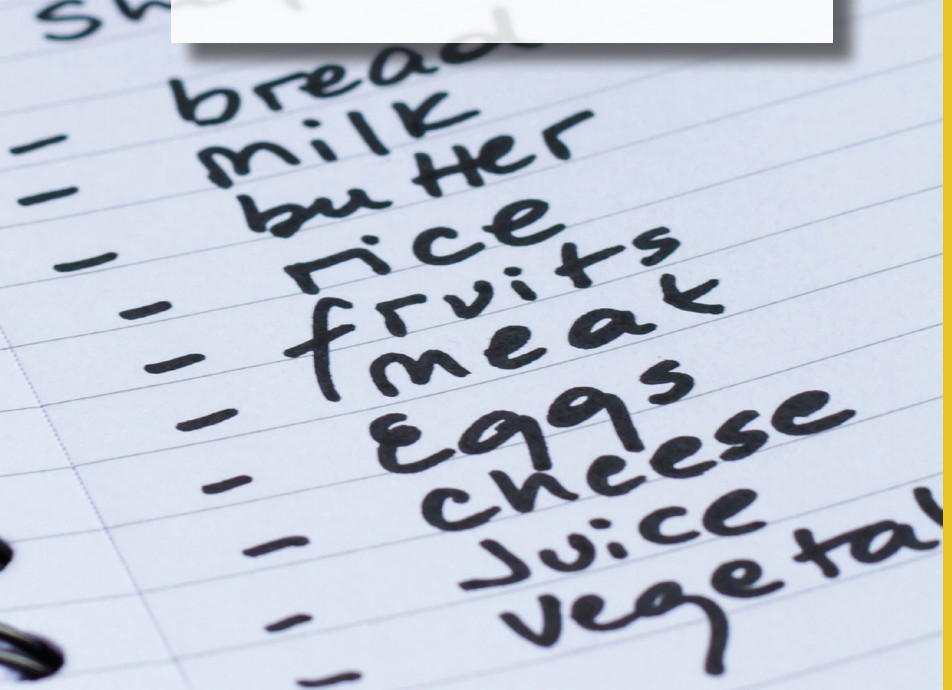 - bread
- milk
- butter
- rice
- fruits
- meat
- Eggs
- cheese
- Juice
- vegetal